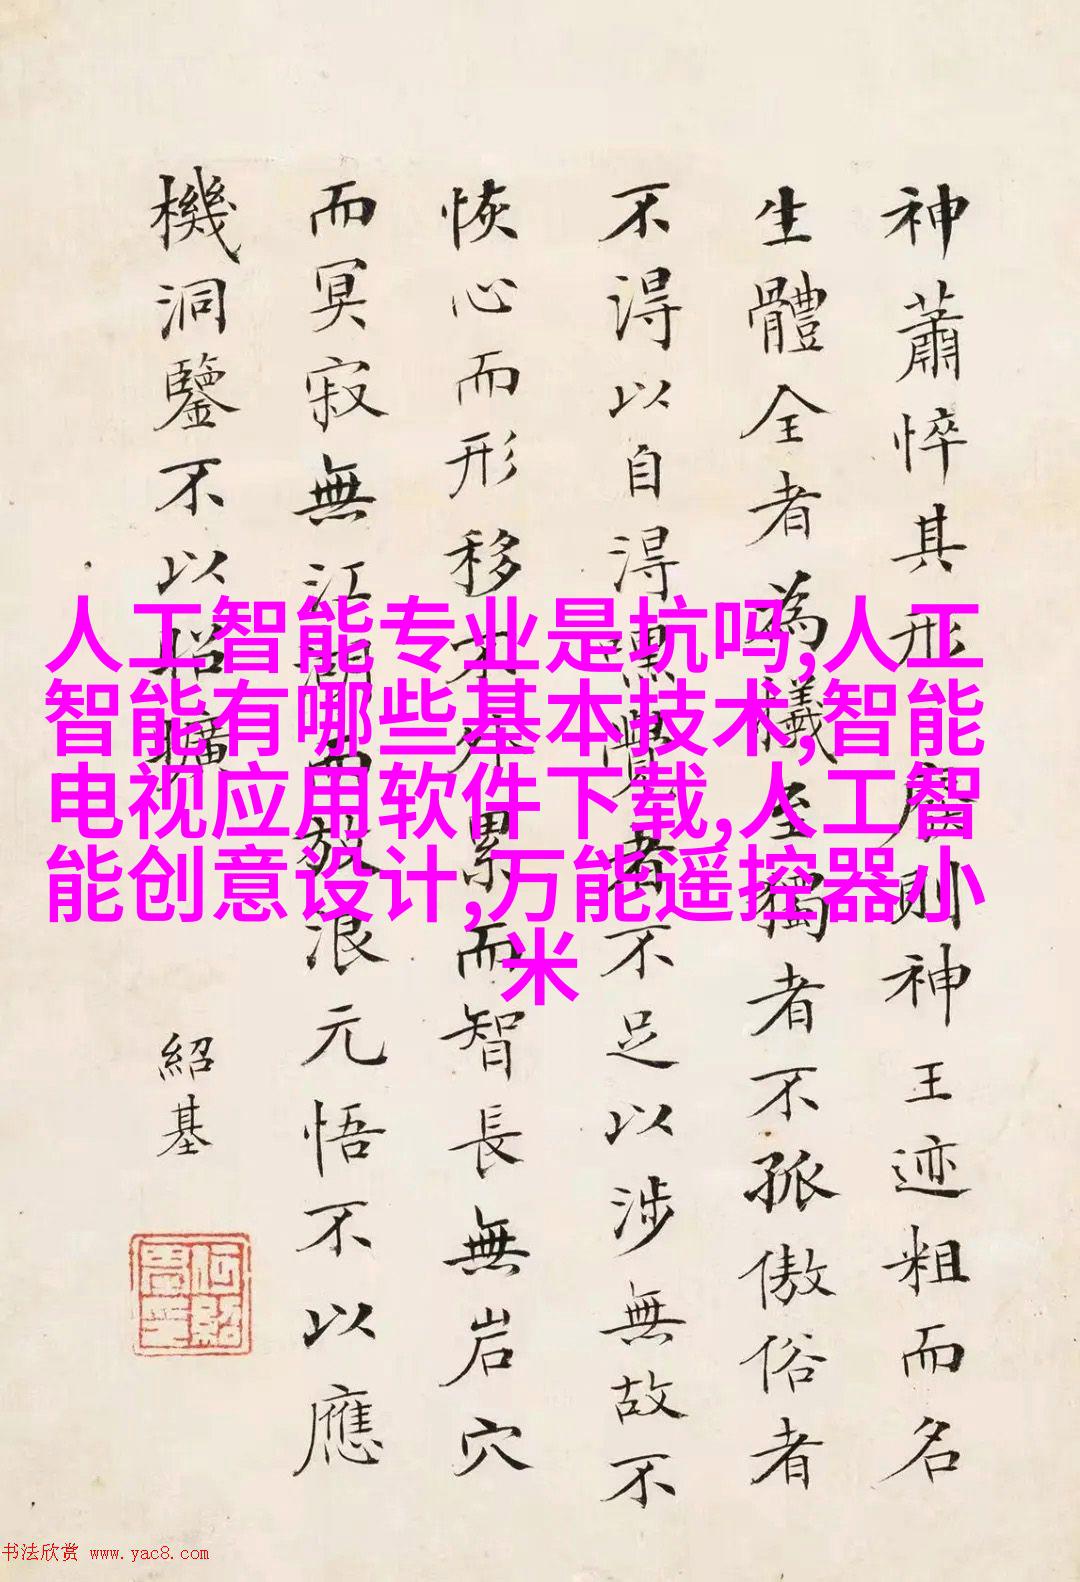 神蕭悴其形廢則神王迹粗而名
生體全者為犧至獨者不孤傲俗者
不得以自得嘿覺者不足以涉無故不
恢心而形移外累而智長無岩穴
而冥寂無江湖而放浪元悟不以應
機洞鑒不以昭曠
紹基
人工智能专业是坑吗,人工
智能有哪些基本技术,智能
电视应用软件下载,人工智
能创意设计,万能遥控器小
米
书法欣赏 www.yac8.com